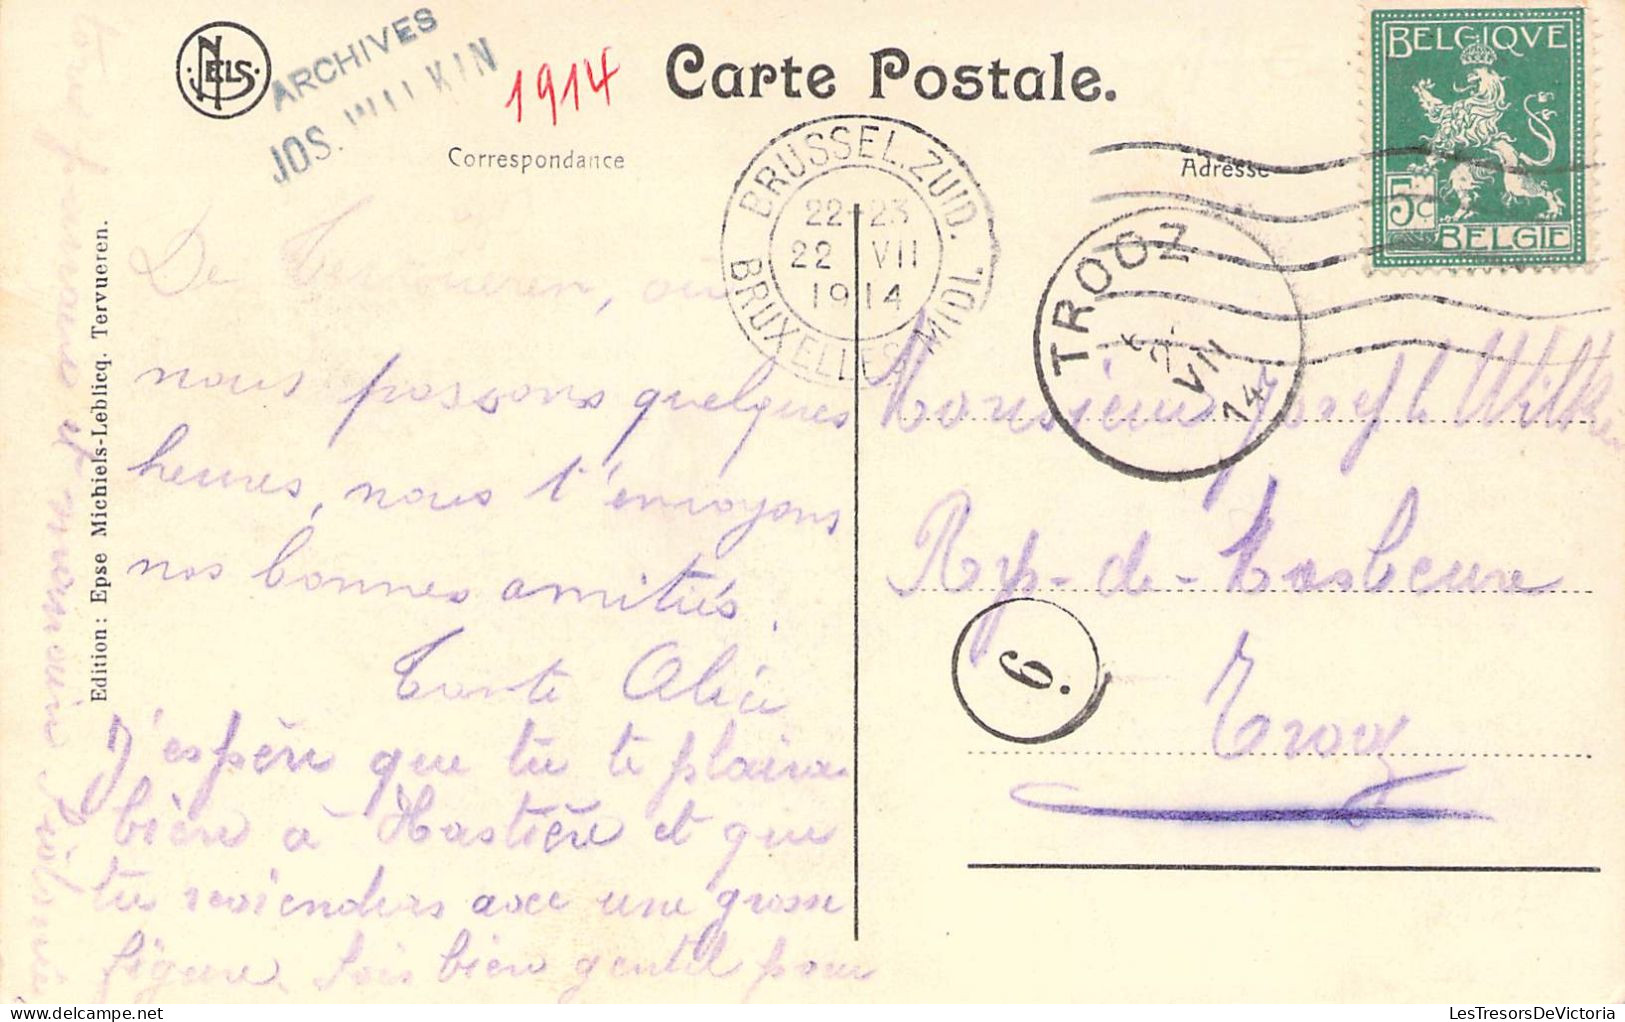 NELS
ARCHIVES
JOS. WILKIN
1914
Carte Postale.
Correspondance
Adresse
BELGIQVE
5c
BELGIE
BRUSSEL.ZUID.
22-23
22 VII
1914
BRUXELLES-MIDI.
TROOZ
VII
14
Edition: Epse Michiels-Leblicq. Tervueren.
De Tervueren, où
nous passons quelques
heures, nous t'envoyons
nos bonnes amitiés.
Tante Alice
J'espère que tu te plaira
bien à Hastière et que
tu reviendras avec une grosse
figure. Sois bien gentil pour
Monsieur Joseph Wilkin
Ry-de-Mosbeux
Trooz
6.
LesTresorsDeVictoria